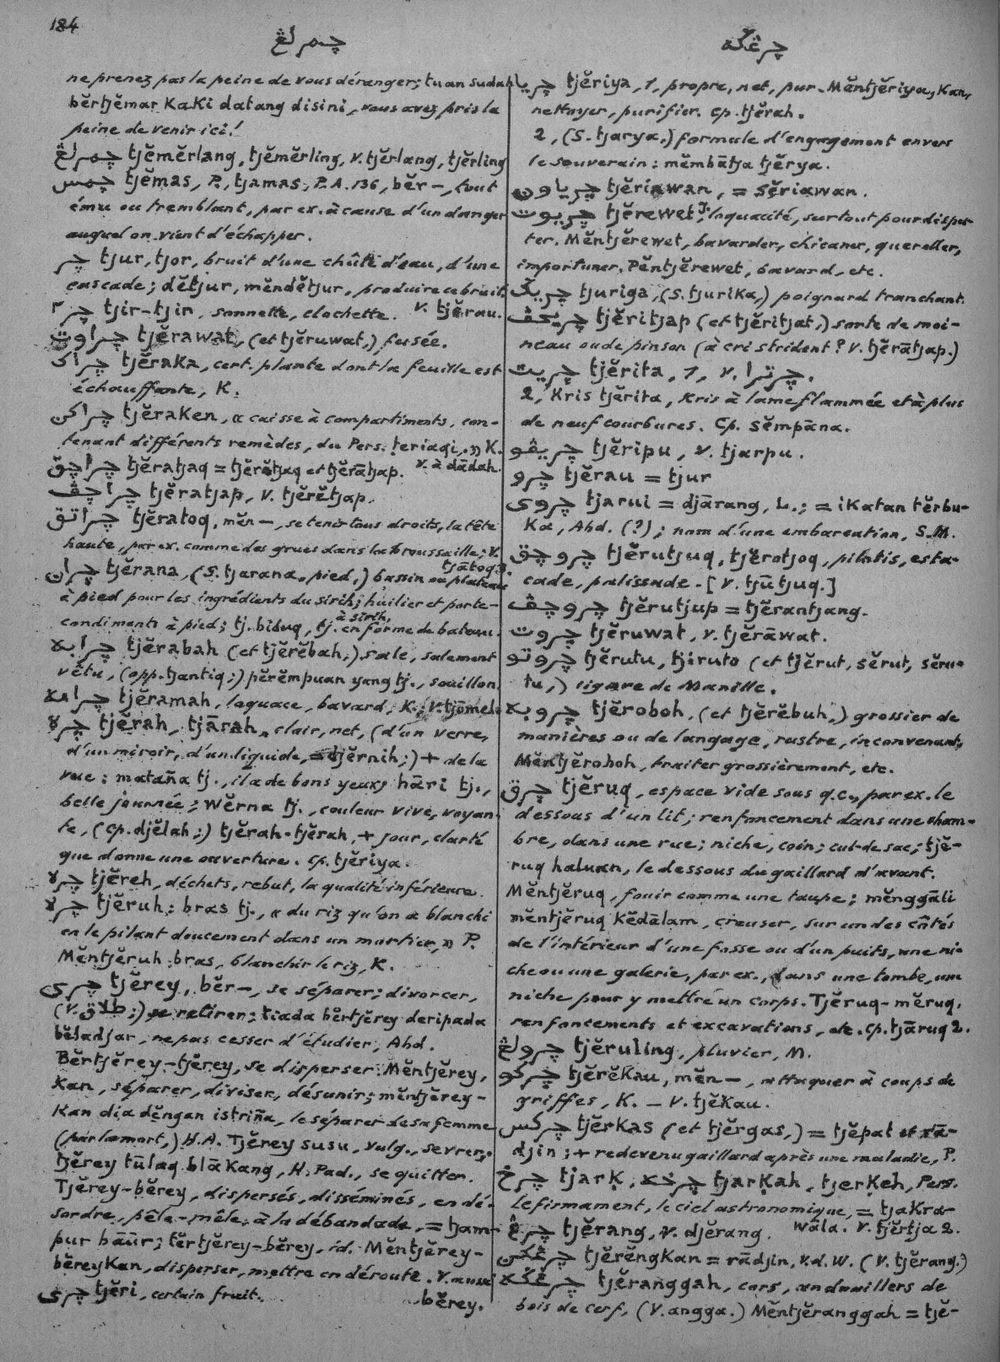 184
چمرلڠ
چرڠݢه
ne prenez pas la peine de vous déranger; tuan sudah
bĕrtjĕmar Kaki datang disini, vous avez pris la
peine de venir ici!
چمرلڠ tjĕmĕrlang, tjĕmĕrling, v. tjĕrlang, tjĕrling
چمس tjĕmas, P., tjamas, P.A. 136, bĕr—, tout
ému ou tremblant, par ex. à cause d'un danger
auquel on vient d'échapper.
چر tjur, tjor, bruit d'une chûte d'eau, d'une
cascade; dĕtjur, mĕndĕtjur, produire ce bruit.
چر٢ tjir-tjir, sonnette, clochette. v. tjĕrau.
چراوت tjĕrawat, (et tjĕruwat,) fusée.
چراک tjĕraka, cert. plante dont la feuille est
échauffante, K.
چراکن tjĕraken, « caisse à compartiments, con-
tenant différents remèdes, du Pers. teriaqi, » K.
چراچق tjĕratjaq = tjĕrĕtjaq et tjĕrātjap. v. à dādah.
چراچڤ tjĕratjap, v. tjĕrĕtjap.
چراتق tjĕratoq, mĕn—, se tenir tous droits, la tête
haute, par ex. comme des grues dans la broussaille; v.
tjātoq 3.
چران tjĕrana, (S. tjarana, pied,) bassin ou plateau
à pied pour les ingrédients du sirih; huilier et porte-
à sirih,
condiments à pied; tj. biduq, tj. en forme de bateau.
چرابه tjĕrabah (et tjĕrĕbah,) sale, salement
vêtu, (opp. tjantiq;) pĕrĕmpuan yang tj., souillon.
چرامه tjĕramah, loquace, bavard, K.; v. tjōmel.
چره tjĕrah, tjārah, clair, net, (d'un verre,
d'un miroir, d'un liquide, = djĕrnih;) + de la
vue: mataña tj., il a de bons yeux; hāri tj.,
belle journée; wĕrna tj., couleur vive, voyan-
te, (cp. djĕlah;) tjĕrah-tjĕrah, + jour, clarté
que donne une ouverture. cp. tjĕriya.
چره tjĕreh, déchets, rebut, la qualité inférieure.
چره tjĕruh: bras tj., « du riz qu'on a blanchi
en le pilant doucement dans un mortier, » P.
Mĕntjĕruh bras, blanchir le riz, K.
چري tjĕrey, bĕr—, se séparer; divorcer,
(v. طلاق;) se retirer; tiada bĕrtjĕrey deripada
bĕladjar, ne pas cesser d'étudier, Ahd.
Bĕrtjĕrey-tjĕrey, se disperser. Mĕntjĕrey,
kan, séparer, diviser, désunir; mĕntjĕrey-
kan dia dĕngan istriña, le séparer de sa femme
(par la mort,) H.A. Tjĕrey susu, vulg., sevrer;
tjĕrey tūlaq blākang, H. Pad., se quitter.
Tjĕrey-bĕrey, dispersés, disséminés, en dé-
sordre, pêle-mêle, à la débandade, = tjam-
pur bāur; tĕrtjĕrey-bĕrey, id. Mĕntjĕrey-
bĕreykan, disperser, mettre en déroute. v. aussi
bĕrey.
چري tjĕri, certain fruit.
چريا tjĕriya, 1, propre, net, pur. Mĕntjĕriya, Kan,
nettoyer, purifier. cp. tjĕrah.
2, (S. tjarya,) formule d'engagement envers
le souverain: mĕmbātja tjĕrya.
چرياون tjĕriawan, = sĕriawan.
چريوت tjĕrewet, loquacité, surtout pour dispu-
ter. Mĕntjĕrewet, bavarder, chicaner, quereller,
importuner. Pĕntjĕrewet, bavard, etc.
چريݢ tjuriga, (S. tjurika,) poignard tranchant.
چريچڤ tjĕritjap (et tjĕritjat,) sorte de moi-
neau ou de pinson (à cri strident? v. tjĕrātjap.)
چريت tjĕrita, 1, v. چرترا.
2, Kris tjĕrita, kris à lame flammée et à plus
de neuf courbures. Cp. sĕmpāna.
چريڤو tjĕripu, v. tjarpu.
چرو tjĕrau = tjur
چروي tjarui = djārang, L.; = ikatan tĕrbu-
ka, Ahd. (?); nom d'une embarcation, S.M.
چروچق tjĕrutjuq, tjĕrotjoq, pilotis, esta-
cade, palissade. [v. tjūtjuq.]
چروچڤ tjĕrutjup = tjĕrantjang.
چروت tjĕruwat, v. tjĕrāwat.
چروتو tjĕrutu, tjiruto (et tjĕrut, sĕrut, sĕru-
tu,) cigare de Manille.
چروبه tjĕroboh, (et tjĕrĕbuh,) grossier de
manières ou de langage, rustre, inconvenant,
Mĕntjĕroboh, traiter grossièrement, etc.
چرق tjĕruq, espace vide sous q.c., par ex. le
dessous d'un lit; renfoncement dans une cham-
bre, dans une rue; niche, coin; cul-de-sac; tjĕ-
ruq haluan, le dessous du gaillard d'avant.
Mĕntjĕruq, fouir comme une taupe; mĕnggāli
mĕntjĕruq kĕdālam, creuser, sur un des côtés
de l'intérieur d'une fosse ou d'un puits, une ni-
che ou une galerie, par ex., dans une tombe, une
niche pour y mettre un corps. Tjĕruq-mĕruq,
renfoncements et excavations, etc. cp. tjāruq 2.
چرولڠ tjĕruling, pluvier, M.
چرکو tjĕrĕkau, mĕn—, attaquer à coups de
griffes, K. — v. tjĕkau.
چرکس tjĕrkas (et tjĕrgas,) = tjĕpat et rā-
djin; + redevenu gaillard après une maladie, P.
چرخ tjarḳ, چرخه tjarḳah, tjerḳeh, Pers.
le firmament, le ciel astronomique, = tjakra-
wāla. v. tjĕrtja 2.
چرڠ tjĕrang, v. djĕrang.
چرڠکن tjĕrĕngkan = rādjin, v.d.W. (v. tjĕrang.)
چرڠݢه tjĕranggah, cors, andouillers de
bois de cerf, (v. angga.) Mĕntjĕranggah = tjĕ-